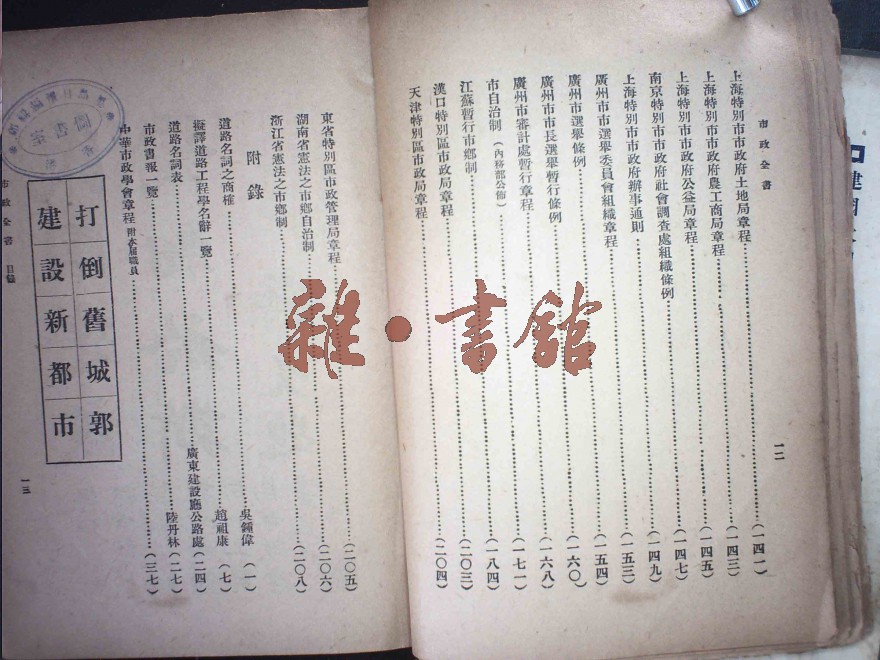 市政全書
一二
上海特別市市政府土地局章程……(一四一)
上海特別市市政府農工商局章程……(一四三)
上海特別市市政府公益局章程……(一四五)
南京特別市市政府社會調查處組織條例……(一四七)
上海特別市市政府辦事通則……(一四九)
廣州市市選舉委員會組織章程……(一五三)
廣州市選舉條例……(一五四)
廣州市市長選舉暫行條例……(一六〇)
廣州市審計處暫行章程……(一六八)
市自治制(內務部公佈)……(一七一)
江蘇暫行市鄉制……(一八四)
漢口特別區市政局章程……(二〇三)
天津特別區市政局章程……(二〇四)
東省特別區市政管理局章程……(二〇五)
湖南省憲法之市鄉自治制……(二〇六)
浙江省憲法之市鄉制……(二〇八)
附錄
道路名詞之商榷……吳鍾偉(一)
擬譯道路工程學名辭一覽……趙祖康(七)
道路名詞表……廣東建設廳公路處(二四)
市政書報一覽……陸丹林(二七)
中華市政學會章程 附本屆職員……(三七)
打倒舊城郭
建設新都市
市政全書 目錄
一三
雜·書館